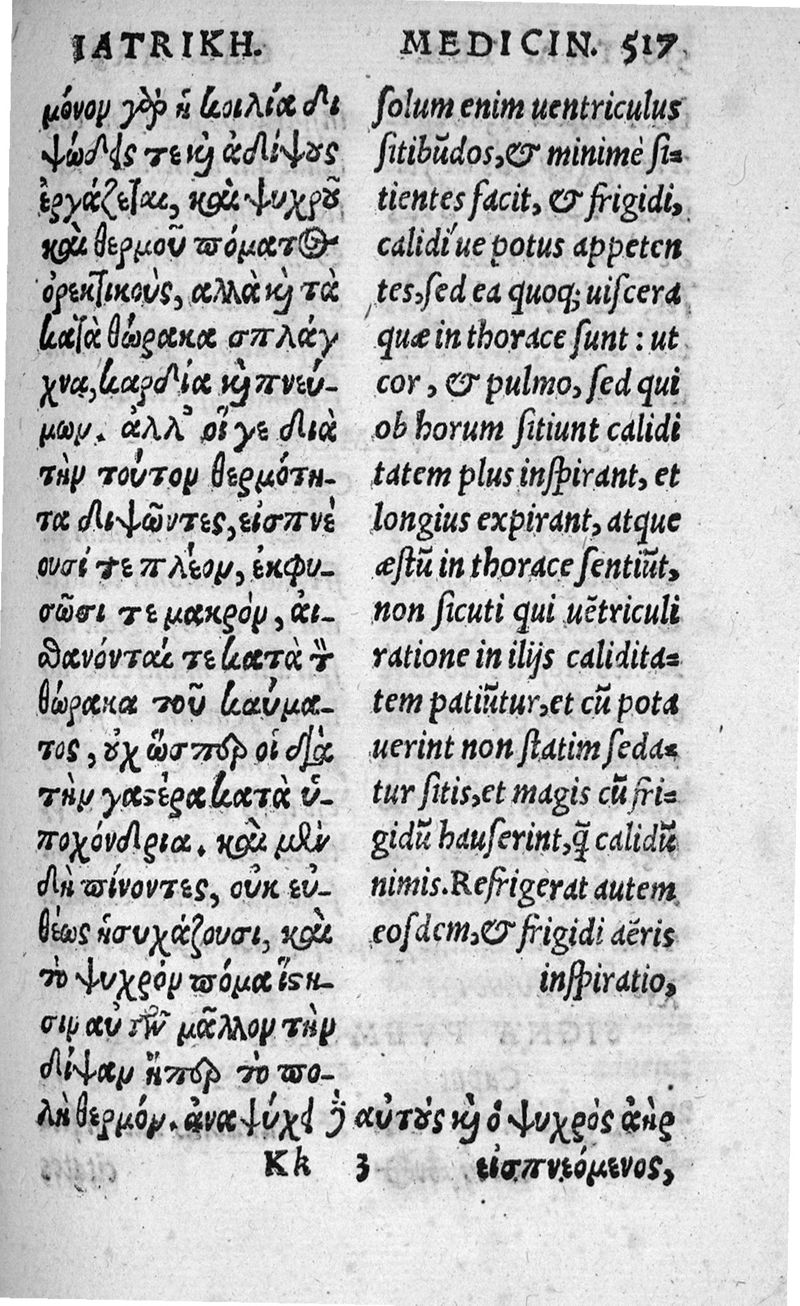 ΙΑΤΡΙΚΗ.
μόνον γὰρ ἡ κοιλία δι
ψώδεις τε καὶ ἀδίψους
ἐργάζεται, καὶ ψυχροῦ
καὶ θερμοῦ πόματος
ὀρεκτικοὺς, ἀλλὰ καὶ τὰ
κατὰ θώρακα σπλάγ
χνα, καρδία καὶ πνεύ-
μων. ἀλλ' οἵ γε διὰ
τὴν τούτον θερμότη-
τα διψῶντες, εἰσπνέ
ουσί τε πλέον, ἐκφυ-
σῶσι τε μακρὸν, ἀι-
σθανόνταί τε κατὰ τὸν
θώρακα τοῦ καύμα-
τος, οὐχ ὥσπερ οἱ διὰ
τὴν γαστέρα κατὰ ὑ-
ποχόνδρια. καὶ μὲν
δὴ πίνοντες, οὐκ εὐ-
θέως ἡσυχάζουσι, καὶ
τὸ ψυχρὸν πόμα ἵστη-
σιν αὐτῶν μᾶλλον τὴν
δίψαν ἤπερ τὸ πο-
λὴ θερμόν. ἀναψύχει δὲ αὐτοὺς καὶ ὁ ψυχρὸς ἀὴρ
Kk 3 εἰσπνεόμενος,
MEDICIN. 517
solum enim uentriculus
sitibūdos, & minimè si=
tientes facit, & frigidi,
calidi´ue potus appeten
tes, sed ea quoq; uiscera
quæ in thorace sunt : ut
cor, & pulmo, sed qui
ob horum sitiunt calidi
tatem plus inspirant, et
longius expirant, atque
æstū in thorace sentiūt,
non sicuti qui uētriculi
ratione in ilijs calidita=
tem patiūtur, et cū pota
uerint non statim seda=
tur sitis, et magis cū fri=
gidū hauserint, q̃ calidū
nimis. Refrigerat autem
eosdem, & frigidi aëris
inspiratio,